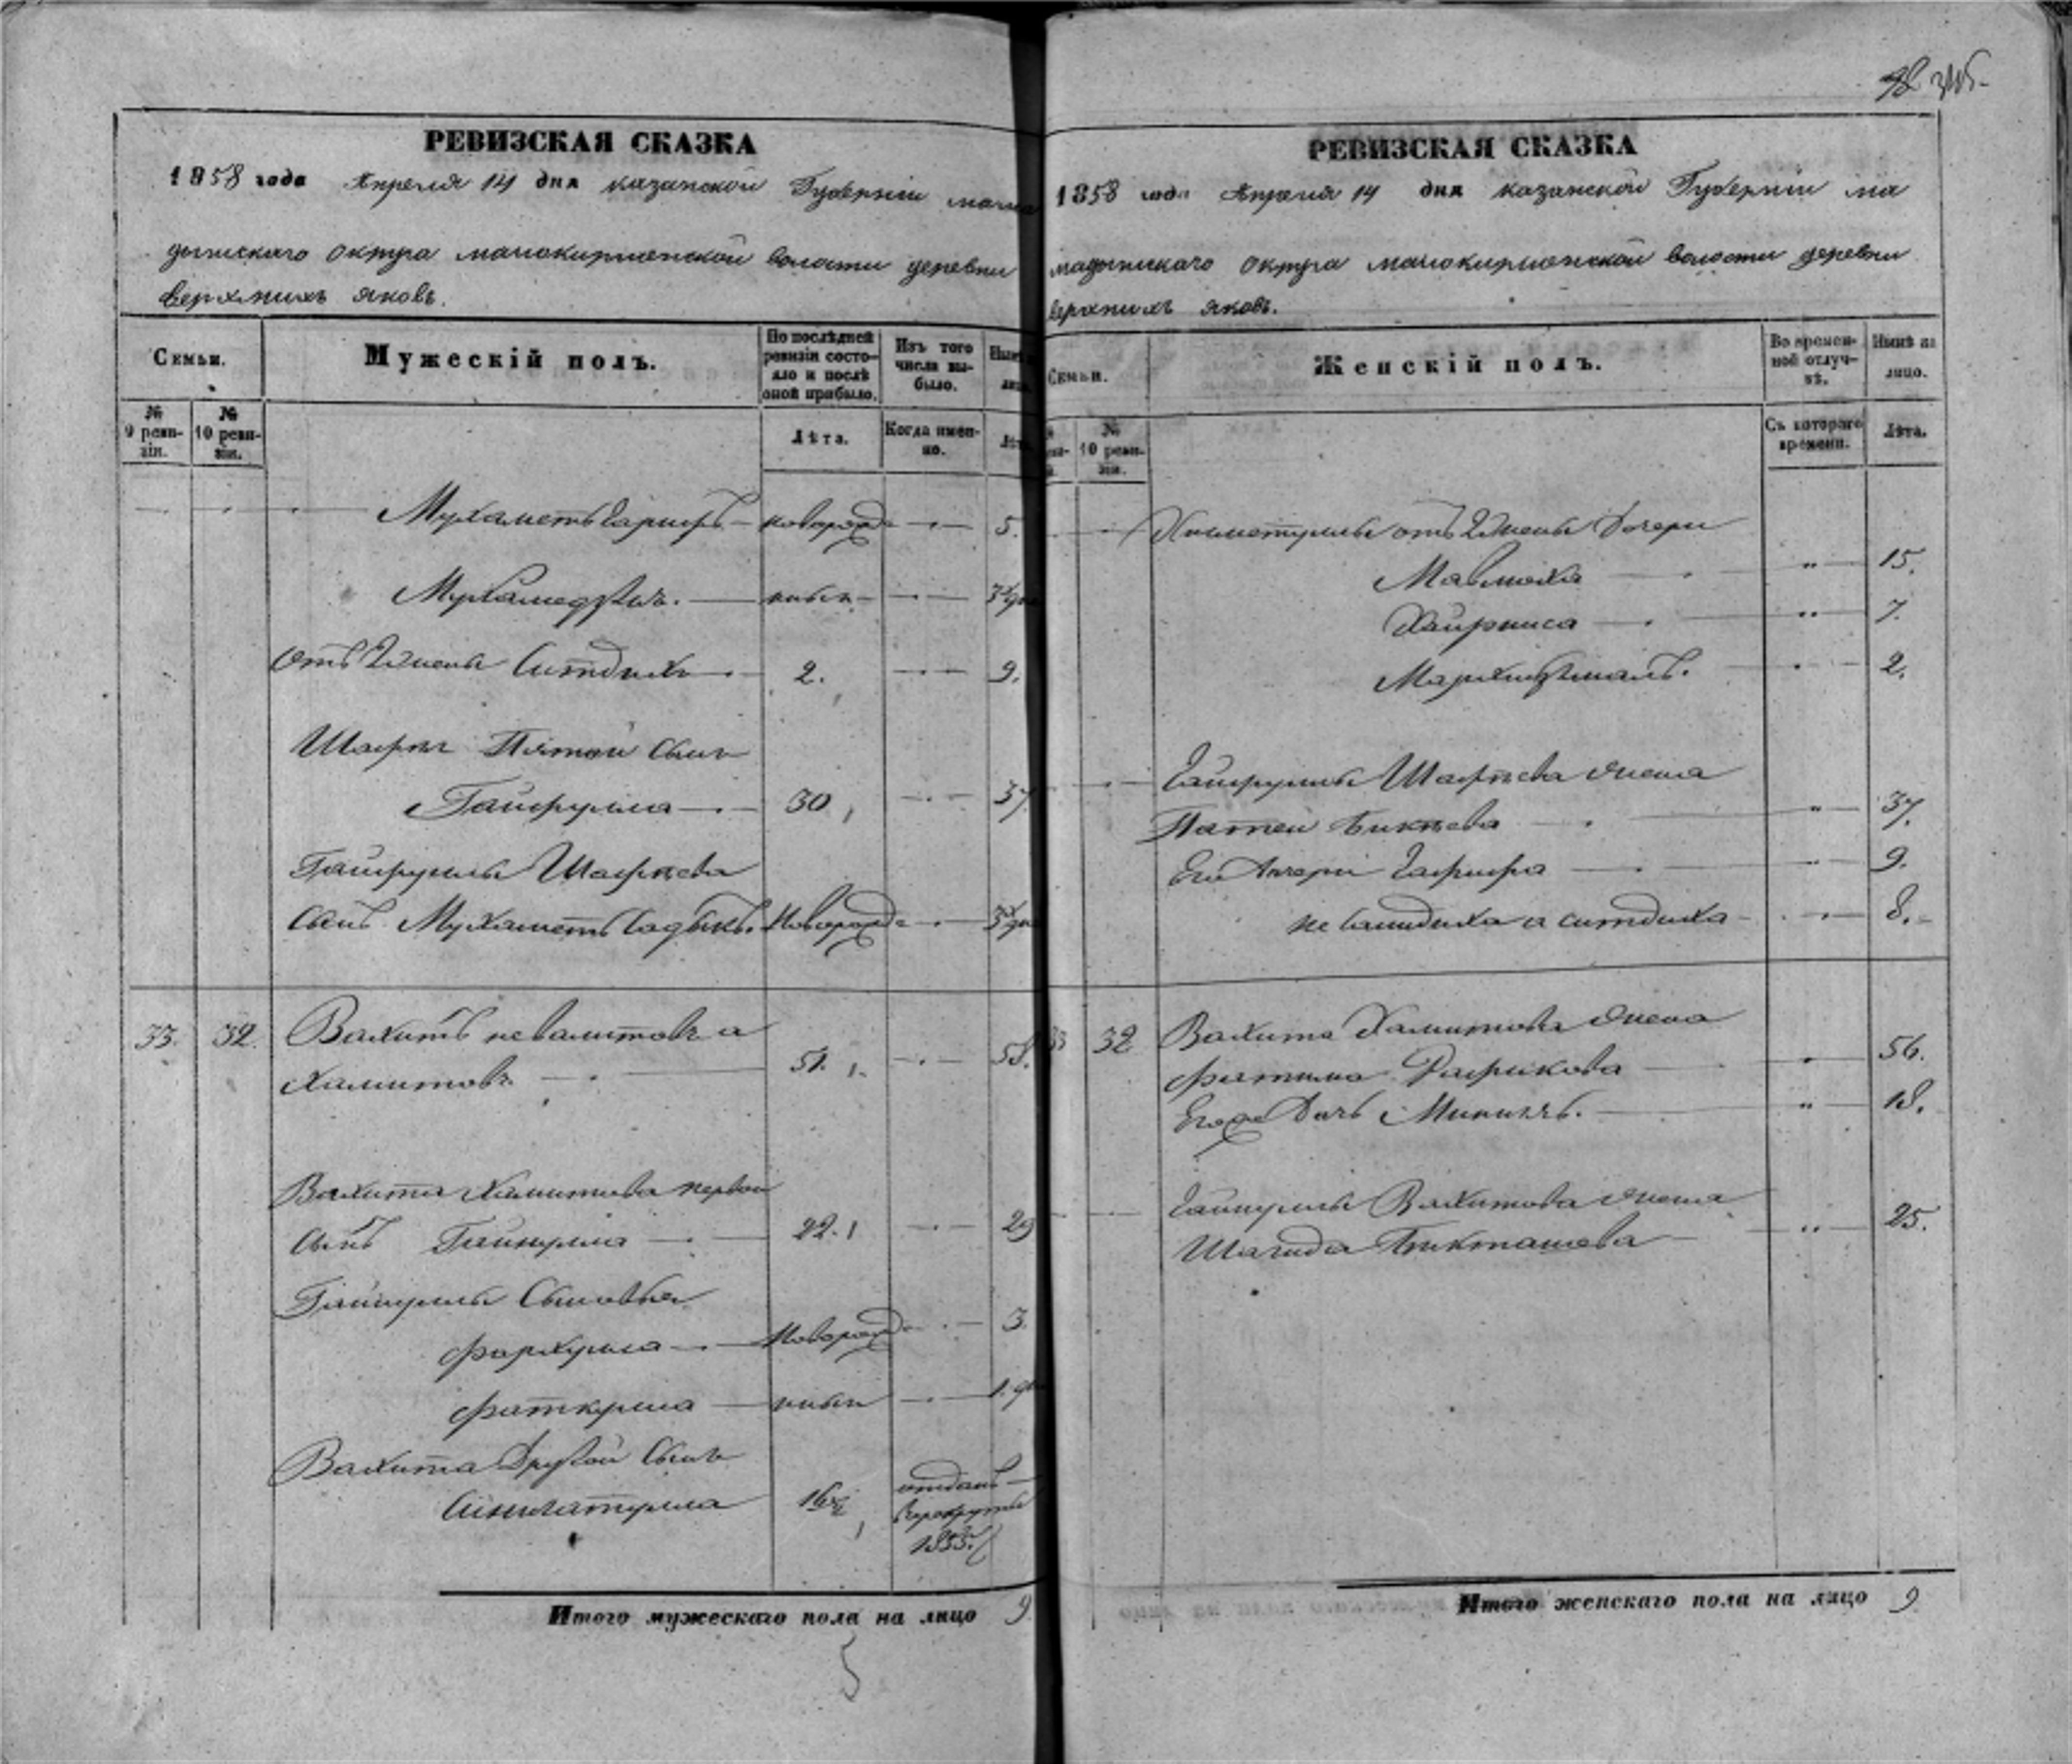 РЕВИЗСКАЯ СКАЗКА
1858 года Апреля 14 дня казанской Губернiи мама
дышскаго округа малокирменской волости деревни
верхнихъ яковъ.
Семьи.
Мужескiй полъ.
По послѣдней ревизiи состояло и послѣ оной прибыло.
Изъ того числа выбыло.
№ 9 ревизiи.
№ 10 ревизiи.
Лѣта.
Когда именно.
Мухаметьгарифъ новорожд 5.
Мухамедзянъ. ныхъ
Отъ 2 жены Ситдикъ 2. 9.
Шафѣя Пятой сынъ
Гайфулла 30 37.
Гайфуллы Шафѣева
сынъ Мухаметь Садыкъ. Новорожд
33. 32. Вахитъ невалитовъ а
Хамитовъ. 51. 58.
Вахита Хамитова первой
сынъ Гайнулла 22. 29
Гайнуллы Сыновья
Фархулла Новорожд 3.
Фаткулла ныхъ
Вахита Другой Сынъ
16½ отданъ
в рекруты
1855.
Итого мужескаго пола на лицо 9
РЕВИЗСКАЯ СКАЗКА
1858 года Апреля 14 дня казанской Губернiи ма
мадышскаго округа малокирменской волости деревни
верхнихъ яковъ.
Семьи.
Женскiй полъ.
Во временной отлучкѣ.
Нынѣ на лицо.
№ 10 ревизiи.
Съ котораго времени.
Лѣта.
отъ 2 жены Дочери
Мавлюха " 15.
Хайрниса " 7.
2.
Гайфуллы Шафѣева жена
Бикѣева " 37.
Его дочери Гафифа 9.
не Сашдиха а ситдиха 8.
33 32 Вахита Хамитова жена
Фатима Рафикова " 56.
Егоже Дочь " 18.
Гайнуллы Вахитова жена
Шагида Бикташева " 25.
Итого женскаго пола на лицо 9